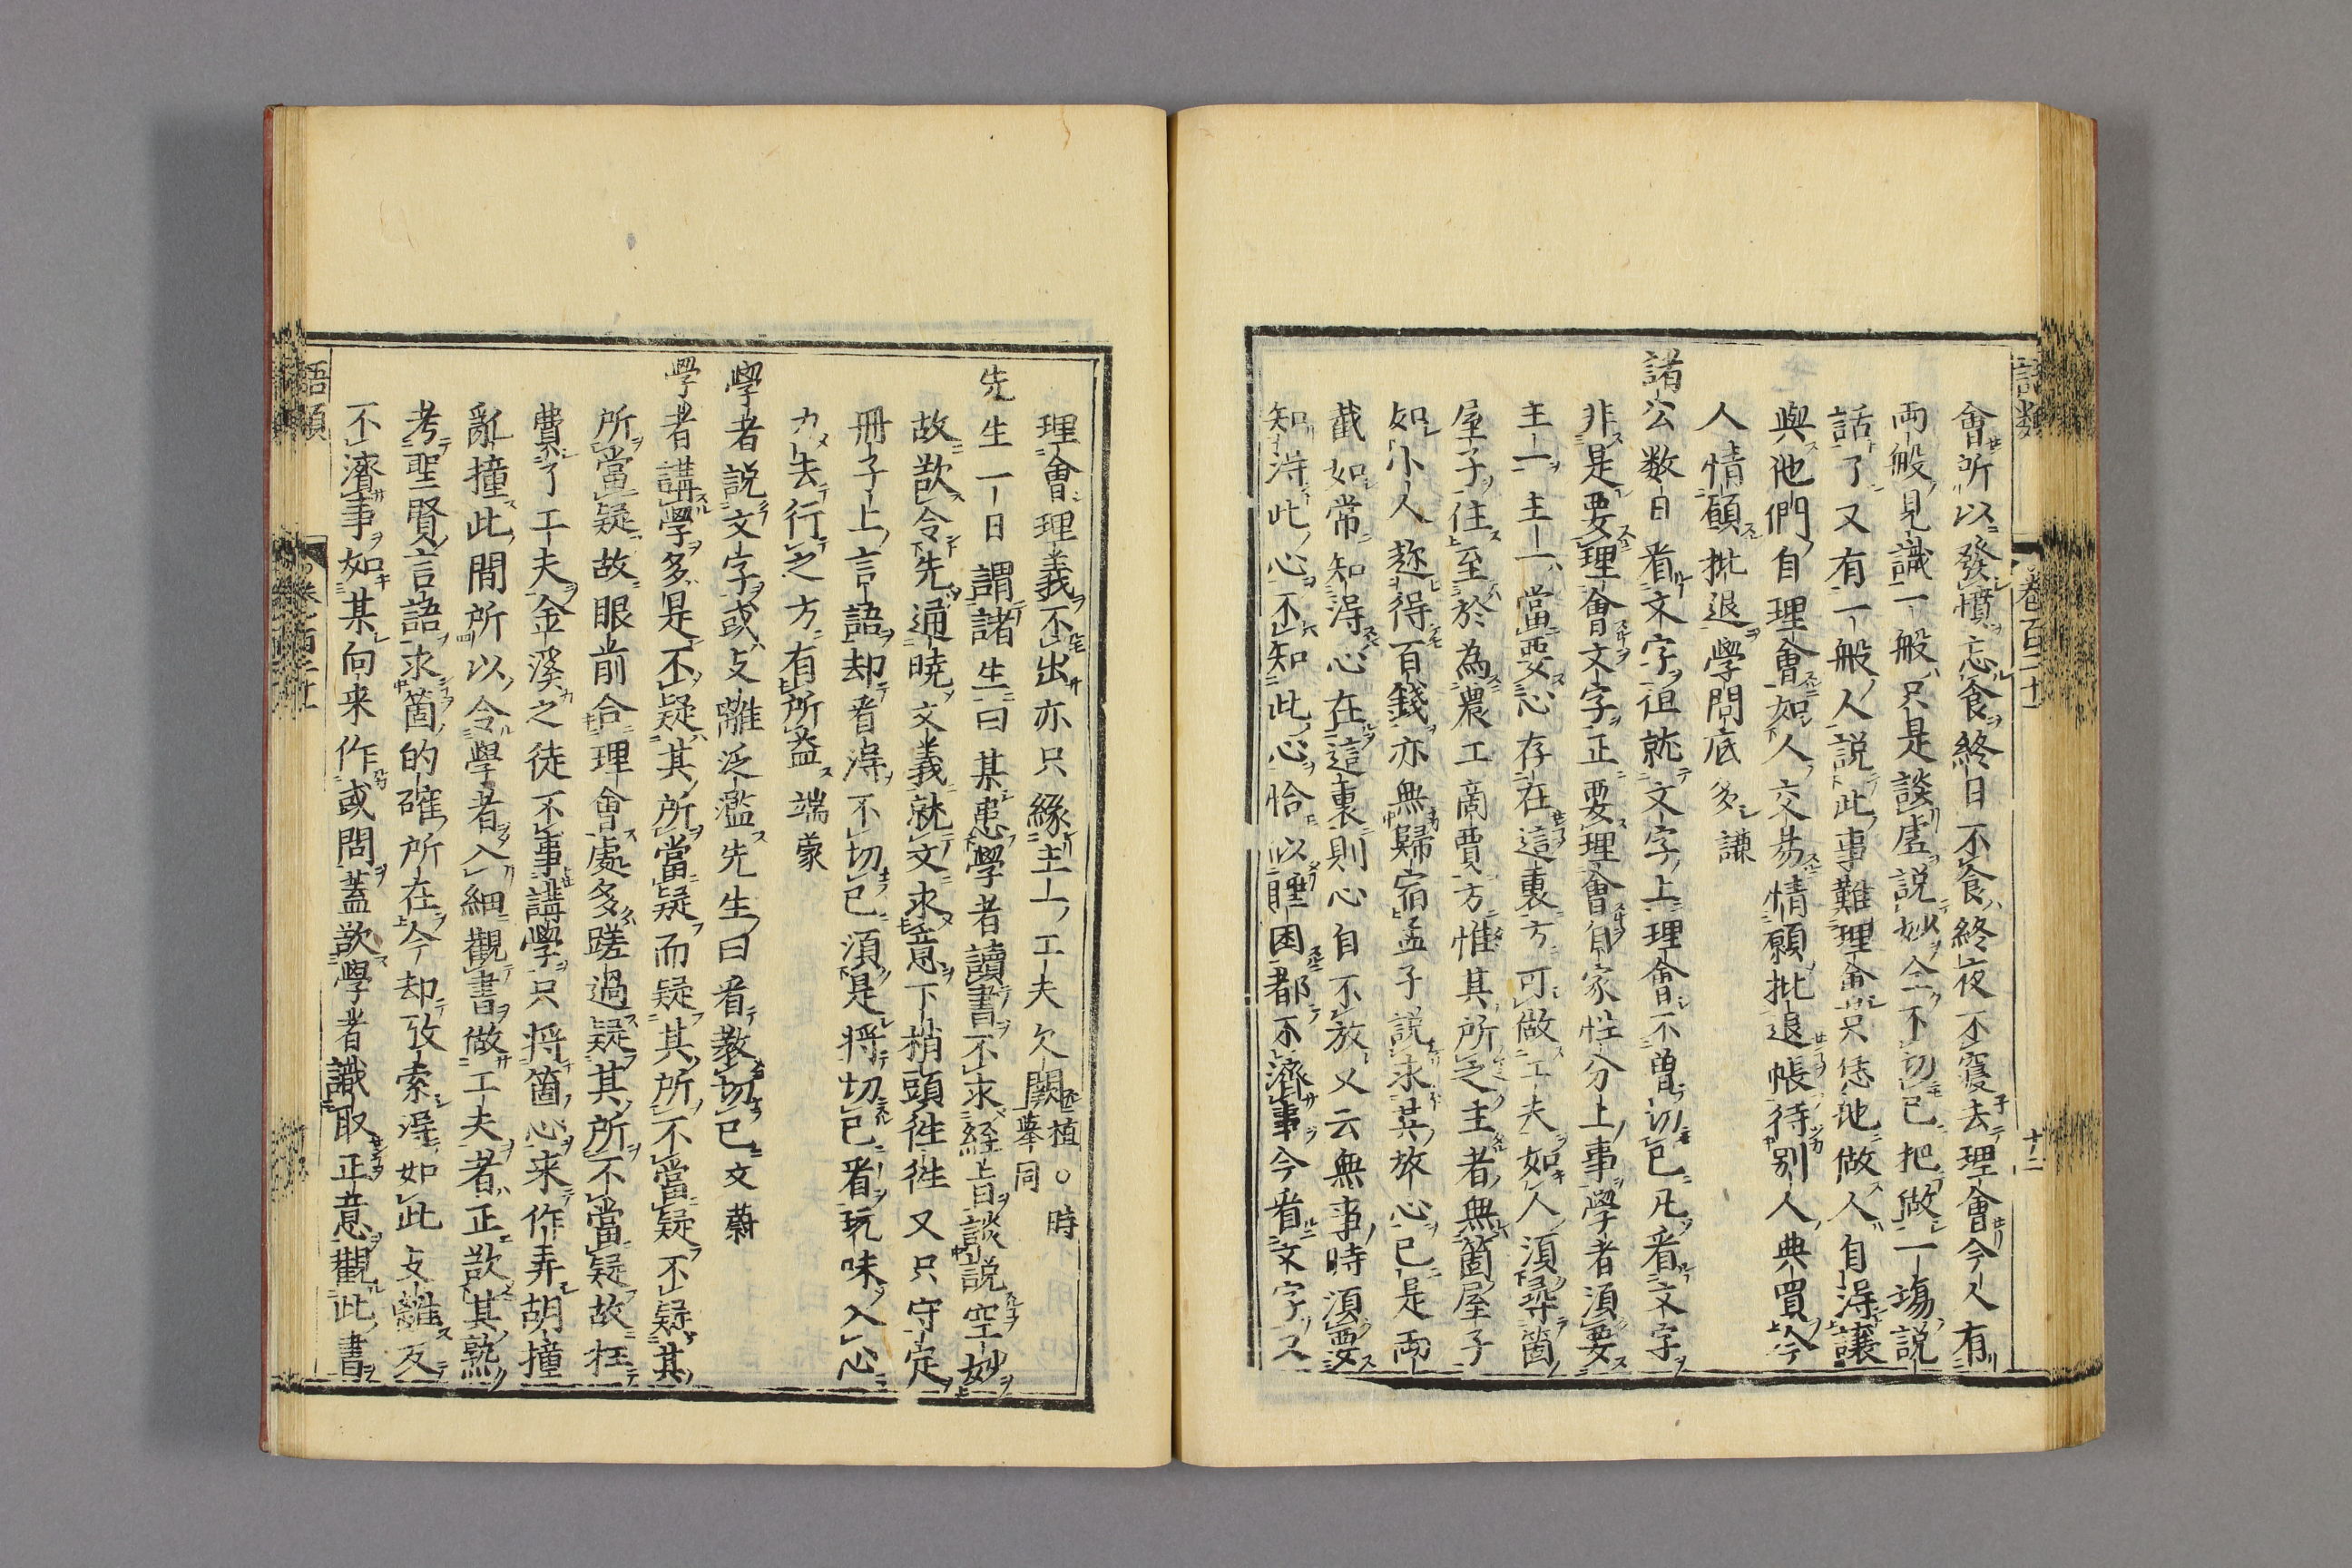 語類
卷百二十一
十二
會所以發憤忘食終日不食終夜不寢去理會今人有
両般見識一般只是談虛説妙全不切己把做一場説
話了又有一般人説此事難理會只恁地做人自得讓
與他們自理會如人交易情願批退帳待別人典買今
人情願批退學問底多 謙
諸公数日看文字徂就文字上理會不曽切己凡看文字
非是要理會文字正要理會自家性分上事學者須要
主一主一當要心存在這裏方可做工夫如人須尋箇
屋子住至於為農工商賈方惟其所之主者無箇屋子
如小人趂得百錢亦無歸宿孟子説求其放心已是両
截如常知得心在這裏則心自不放又云無事時須要
知得此心不知此心恰似睡困都不濟事今看文字又
理會理義不出亦只緣主一工夫欠闕 植○時
擧同
先生一日謂諸生曰某患學者讀書不求経旨談説空妙
故欲令先通曉文義就文求意下梢頭徃徃又只守定
冊子上言語却看得不切己須是将切己看玩味入心
力去行之方有所益 端蒙
學者説文字或支離泛濫先生曰看教切己 文蔚
學者講學多是不疑其所當疑而疑其所不當疑不疑其
所當疑故眼前合理會處多蹉過疑其所不當疑故枉
費了工夫金溪之徒不事講學只将箇心来作弄胡撞
亂撞此間所以令學者入細觀書做工夫者正欲其熟
考聖賢言語求箇的確所在今却攷索得如此支離反
不濟事如某向来作或問蓋欲學者識取正意觀此書
語類
卷百二十一